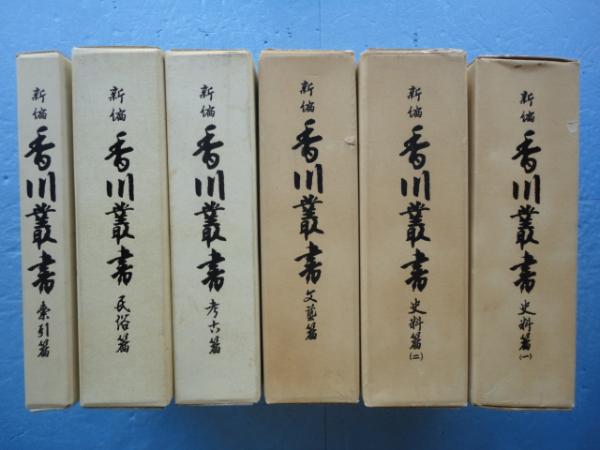 新編 香川叢書 史料篇(一)
新編 香川叢書 史料篇(二)
新編 香川叢書 文藝篇
新編 香川叢書 考古篇
新編 香川叢書 民俗篇
新編 香川叢書 索引篇